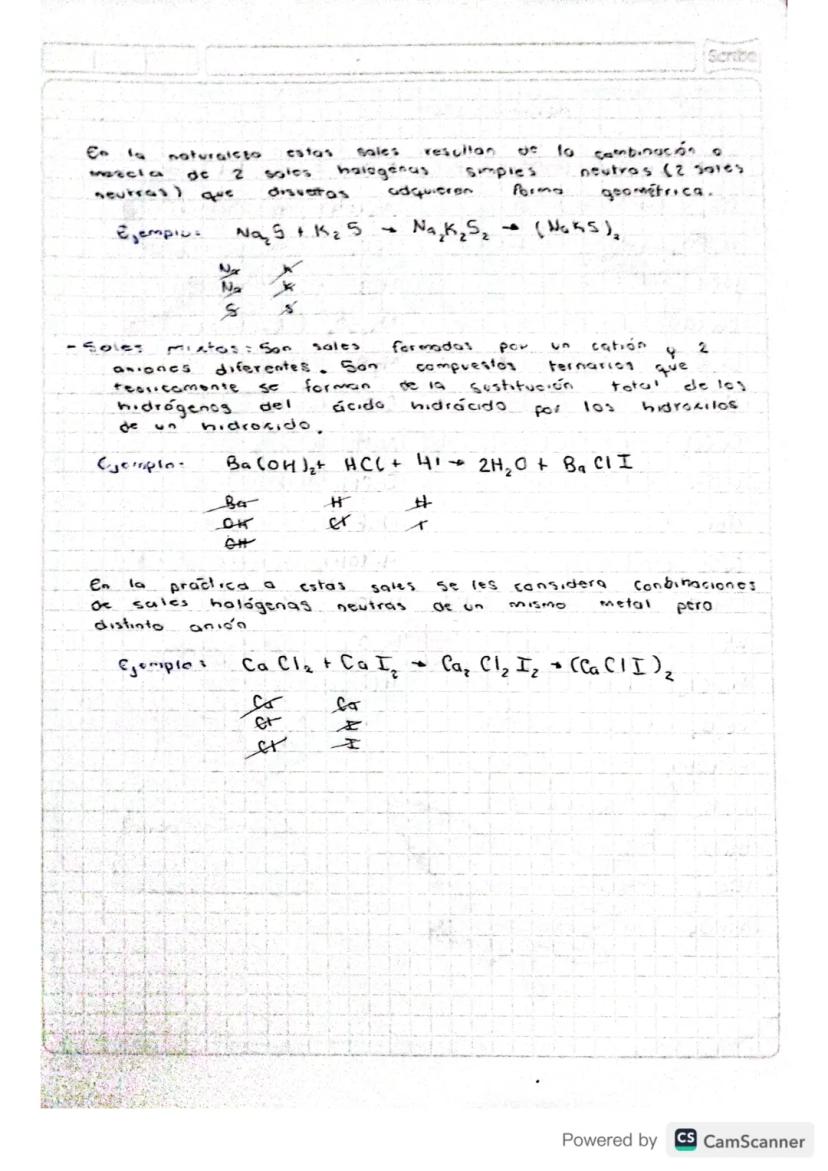 Scribe
En la naturaleza estas sales resultan de la combinación o
mezcla de 2 sales halogénas simples neutras (2 sales
neutras) que disueltas adquieren forma geométrica.
Ejemplo: Na₂S + K₂S → Na₂K₂S₂ → (NaKS)₂
Na K
Na K
S S
- Sales mixtas: Son sales formadas por un catión y 2
aniones diferentes. Son compuestos ternarios que
teoricamente se forman de la sustitución total de los
hidrógenos del ácido hidrácido por los hidroxilos
de un hidroxido.
Ejemplo: Ba(OH)₂+ HCl + HI → 2H₂O + BaClI
Ba H H
OH Cl I
OH
En la práctica a estas sales se les considera conbinaciones
de sales halógenas neutras de un mismo metal pero
distinto anión
Ejemplo: CaCl₂ + CaI₂ → Ca₂Cl₂I₂ → (CaClI)₂
Ca Ca
Cl I
Cl I
Powered by CS CamScanner